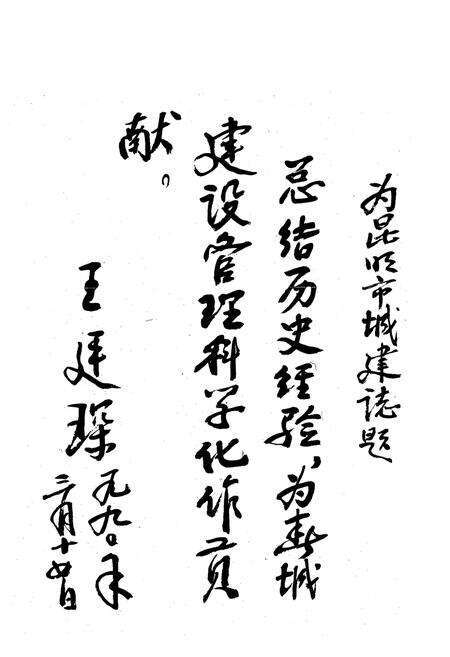 为昆明市城建誌题
总结历史经验，为春城
建设管理科学化作贡
献。
王廷琛
一九九〇年
三月十四日